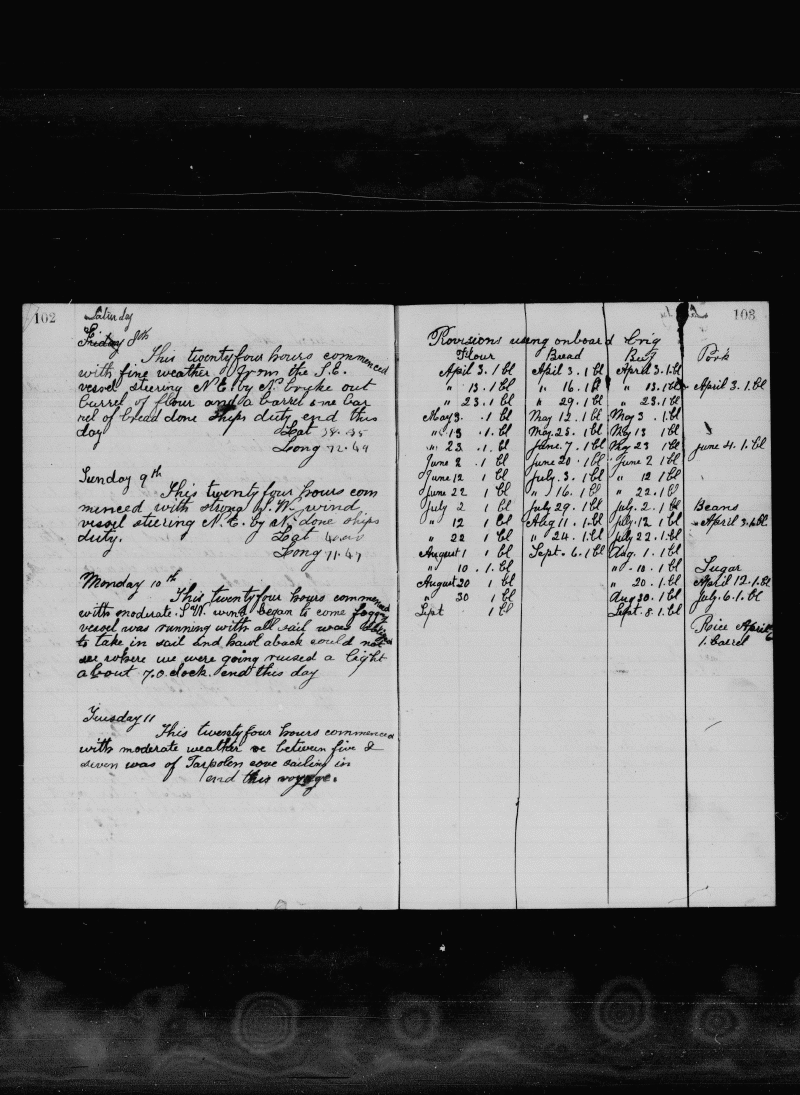 102
Saturday
Friday 8th
This twentyfour hours commenced
with fine weather from the S.E.
vessel steering N.E. by N. bryke out
burrel of flour and a barrel one bar
rel of bread done ships duty end this
day Lat 38.35
Long 72.49
Sunday 9th
This twentyfour hours com
menced with strong S.W. wind
vessel steering N.E. by N. done ships
duty. Lat
Long 71.47
Monday 10th
This twentyfour hours commenced
with moderate S.W. wind began to come foggy
vessel was running with all sail was
to take in sail and hawl aback could not
see where we were going raised a light
about 7.O clock. end this day
Tuesday 11
This twentyfour hours commenced
with moderate weather we between five &
seven was of Tarpolen cove sailing in
end this voyage.
103
Provisions using onboard brig
Flour Bread Beef Pork
April 3. 1 bl April 3. 1 bl April 3. 1 bl
" 13. 1 bl " 16. 1 bl " 13. 1 bl April 3. 1. bl
" 23. 1 bl " 29. 1 bl " 23. 1 bl
May 3. 1 bl May 12. 1 bl May 3. 1 bl
" 13 . 1. bl May. 25. 1 bl May 13 1 bl
" 23. . 1. bl June. 7. 1 bl May 23 1 bl June 4. 1. bl
June 2 . 1 bl June 20 . 1 bl June 2 1 bl
June 12 1 bl July. 3. 1 bl " 12 1 bl
June 22 1 bl " 16. 1 bl " 22. 1 bl
July 2 1 bl July 29. 1 bl July. 2. 1 bl Beans
" 12 1 bl Aug 11. 1. bl July. 12 1 bl April 3. 1. bl
" 22 1 bl " 24. 1 bl July 22. 1 bl
August 1 1 bl Sept. 6. 1 bl Aug. 1. 1 bl
" 10. 1. bl " 10. 1 bl Sugar
August 20 1 bl " 20. 1 bl April 12. 1. bl
" 30 1 bl Aug 30. 1 bl July. 6. 1. bl
Sept 1 bl Sept. 8. 1. bl
Rice April
1. barrel